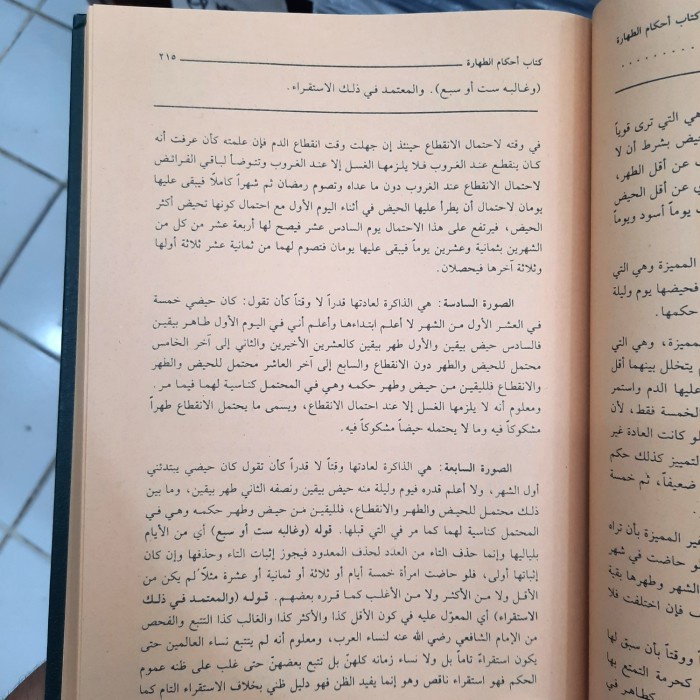 كتاب أحكام الطهارة ٢١٥
(وغالبه ست أو سبع). والمعتمد في ذلك الاستقراء.
في وقته لاحتمال الانقطاع حينئذ إن جهلت وقت انقطاع الدم فإن علمته كأن عرفت أنه
كان ينقطع عند الغروب فلا يلزمها الغسل إلا عند الغروب وتتوضأ لباقي الفرائض
لاحتمال الانقطاع عند الغروب دون ما عداه وتصوم رمضان ثم شهراً كاملاً فيبقى عليها
يومان لاحتمال أن يطرأ عليها الحيض في أثناء اليوم الأول مع احتمال كونها تحيض أكثر
الحيض، فيرتفع على هذا الاحتمال يوم السادس عشر فيصح لها أربعة عشر من كل من
الشهرين بثمانية وعشرين يوماً فيبقى عليها يومان فتصوم لهما من ثمانية عشر ثلاثة أولها
وثلاثة آخرها فيحصلان.
الصورة السادسة: هي الذاكرة لعادتها قدراً لا وقتاً كأن تقول: كان حيضي خمسة
في العشر الأول من الشهر لا أعلم ابتداءها وأعلم أني في اليوم الأول طاهر بيقين
فالسادس حيض بيقين والأول طهر بيقين كالعشرين الأخيرين والثاني إلى آخر الخامس
محتمل للحيض والطهر دون الانقطاع والسابع إلى آخر العاشر محتمل للحيض والطهر
والانقطاع فلليقين من حيض وطهر حكمه وهي في المحتمل كناسية لهما فيما مر.
ومعلوم أنه لا يلزمها الغسل إلا عند احتمال الانقطاع، ويسمى ما يحتمل الانقطاع طهراً
مشكوكاً فيه وما لا يحتمله حيضاً مشكوكاً فيه.
الصورة السابعة: هي الذاكرة لعادتها وقتاً لا قدراً كأن تقول كان حيضي يبتدئني
أول الشهر، ولا أعلم قدره فيوم وليلة منه حيض بيقين ونصفه الثاني طهر بيقين، وما بين
ذلك محتمل للحيض والطهر والانقطاع، فلليقين من حيض وطهر حكمه وهي في
المحتمل كناسية لهما كما مر في التي قبلها. قوله (وغالبه ست أو سبع) أي من الأيام
بلياليها وإنما حذف التاء من العدد لحذف المعدود فيجوز إثبات التاء وحذفها وإن كان
إثباتها أولى، فلو حاضت امرأة خمسة أيام أو ثلاثة أو ثمانية أو عشرة مثلاً لم يكن من
الأقل ولا من الأكثر ولا من الأغلب كما قرره بعضهم. قوله (والمعتمد في ذلك
الاستقراء) أي المعوّل عليه في كون الأقل كذا والأكثر كذا والغالب كذا التتبع والفحص
من الإمام الشافعي رضي الله عنه لنساء العرب، ومعلوم أنه لم يتتبع نساء العالمين حتى
يكون استقراءً تاماً بل ولا نساء زمانه كلهنّ بل تتبع بعضهنّ حتى غلب على ظنه عموم
الحكم فهو استقراء ناقص وهو إنما يفيد الظن فهو دليل ظني بخلاف الاستقراء التام كما
كتاب أحكام الطهارة
هي التي ترى قوياً
يض بشرط أن لا
عن أقل الطهر،
ي عن أقل الحيض
يوماً أسود ويوماً
المميزة وهي التي
فحيضها يوم وليلة
حكمها.
مميزة، وهي التي
يتخلل بينهما أقل
عليها الدم واستمر
لخمسة فقط، لأن
لو كانت العادة غير
لتمييز كذلك حكم
ضعيفاً، ثم خمسة
غير المميزة بأن تراه
فلو حاضت في شهر
الشهر وطهرها بقية
ف فإن اختلفت فلا
اً ووقتاً بأن سبق لها
كحرمة التمتع بها
كطاهر في